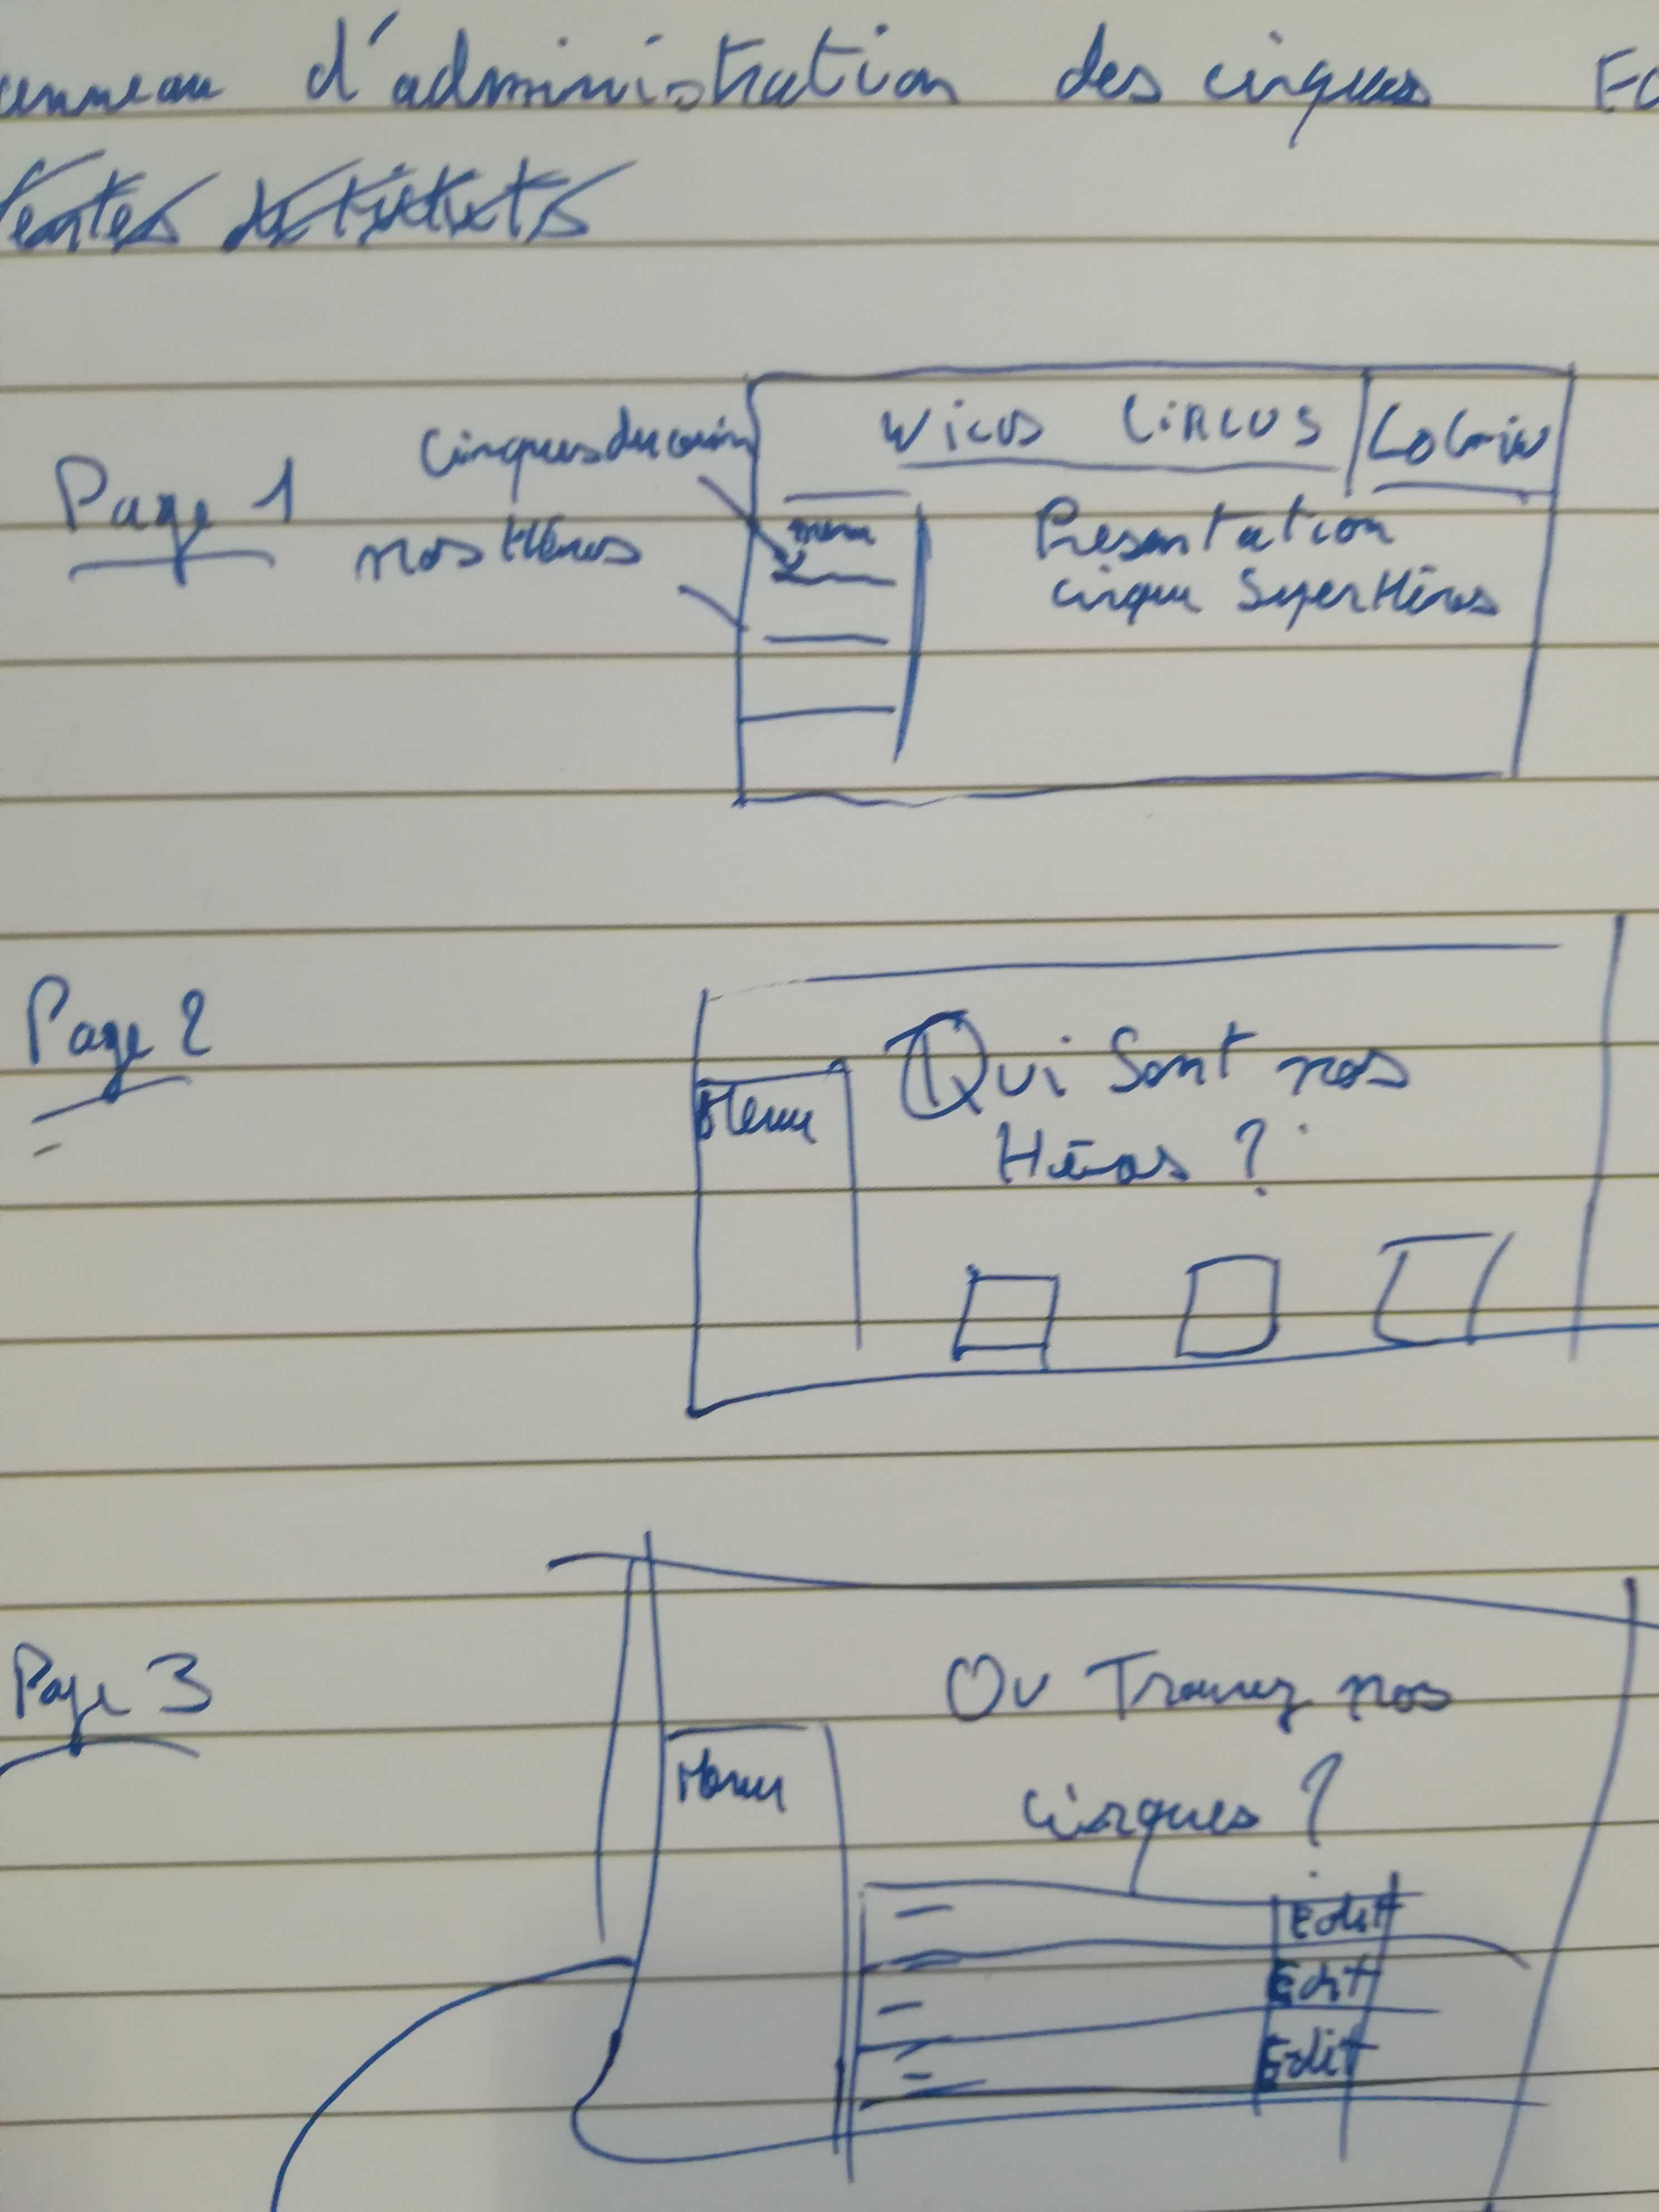 anneau d'administration des cirques
Ventes de tickets
Page 1
Cirques du coin
nos Héros
WiCUS CiRCUS
LOGiN
menu
Présentation
cirque SuperHéros
Page 2
Menu
Qui Sont nos
Héros ?
Page 3
Menu
Ou Trouvez nos
Cirques ?
Edit
Edit
Edit